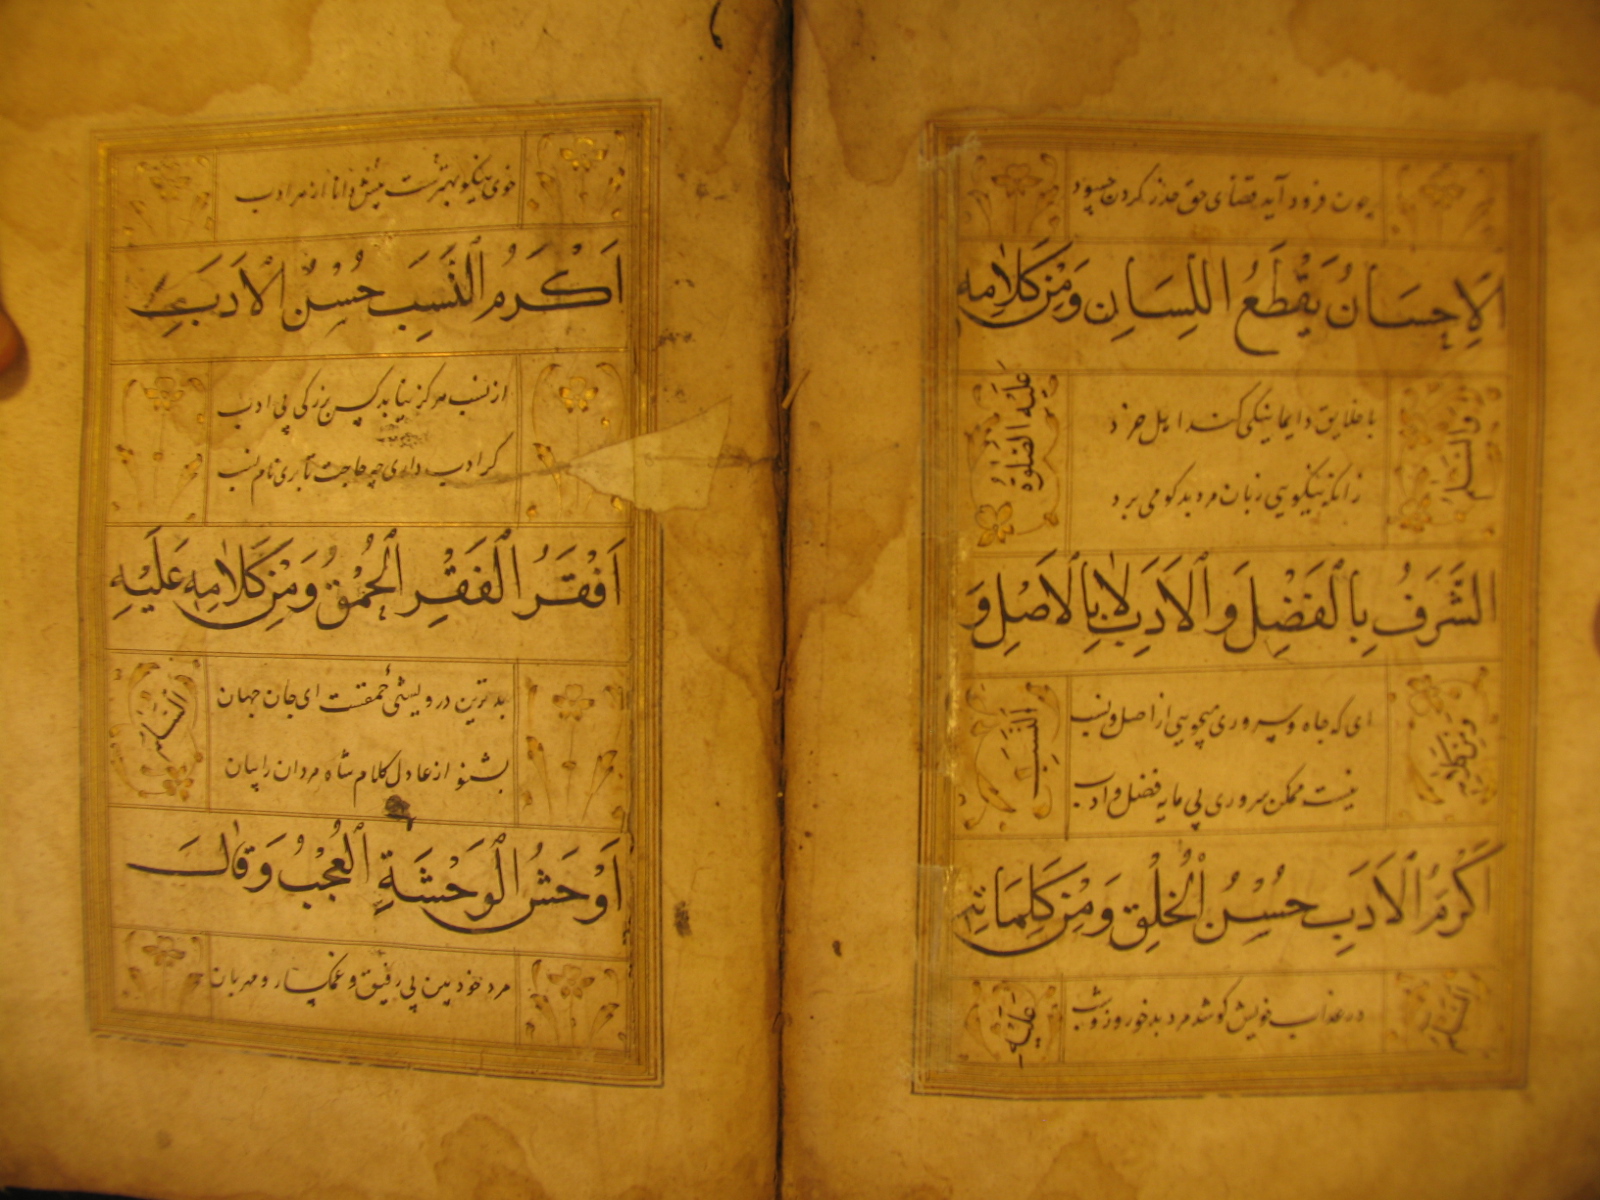 چون فرود آید قضای حق حذر کردن چسود
اَلاِحسَانُ یَقْطَعُ اللِسَانِ وَمِنْ کَلَامِهِ
عَلَیهِ الصَّلوةُ وَالسَّلَام
با خلایق دایما نیکی کند اهل خرد
زانکه نیکویی زبان مرد بدگو می برد
الشَرَفُ بِالفَضْلِ وَالاَدَبِ لَا بِالاَصْلِ وَ
النَّسَبِ
ای که جاه و سروری میجویی از اصل و نسب
نیست ممکن سروری بی مایه فضل و ادب
اَکْرَمُ الاَدَبِ حُسْنُ الْخُلْقِ وَمِنْ کَلِمَاتِهِ
عَلَیْهِ السَّلَام
در عذاب خویش کوشد مرد بدخو روز و شب
خوی نیکو بهترست پیش دانا از هر ادب
اَکْرَمُ النَّسَبِ حُسْنُ الاَدَبِ
از نسب هرگز نیابد کس بزرکی بی ادب
کر ادب داری چه حاجت تا بری نام نسب
اَفْقَرُ الفَقْرِ الحُمْقُ وَمِنْ کَلَامِهِ عَلَیْهِ
السَّلَام
بدترین درویشی حمقست ای جان جهان
بشنو از عادل کلام شاه مردان را بیان
اَوْحَشُ الوَحْشَةِ العُجْبُ وَقَالَ
مرد خودبین بی رفیق و غمکسار و مهربان